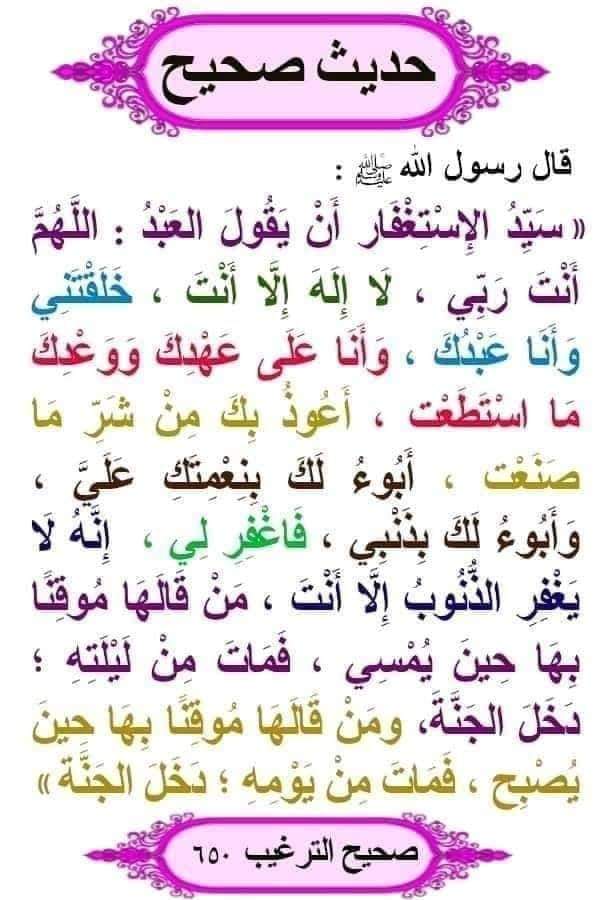 حديث صحيح
قال رسول الله ﷺ :
« سَيِّدُ الإِسْتِغْفَار أَنْ يَقُولَ العَبْدُ : اللَّهُمَّ
أَنْتَ رَبِّي ، لَا إِلَهَ إِلَّا أَنْتَ ، خَلَقْتَنِي
وَأَنَا عَبْدُكَ ، وَأَنَا عَلَى عَهْدِكَ وَوَعْدِكَ
مَا اسْتَطَعْت ، أَعُوذُ بِكَ مِنْ شَرِّ مَا
صَنَعْت ، أَبُوءُ لَكَ بِنِعْمِتَكِ عَلَيَّ ،
وَأَبُوءُ لَكَ بِذَنْبِي ، فَاغْفِرِ لِي ، إِنَّهُ لَا
يَغْفِرِ الذُّنُوبُ إِلَّا أَنْتَ ، مَنْ قَالَهَا مُوقِنًا
بِهَا حِينَ يُمْسِي ، فَمَاتَ مِنْ لَيْلَتِهِ ؛
دَخَلَ الجَنَّةَ، ومَنْ قَالَهَا مُوقِنًا بِهَا حِينَ
يُصْبِح ، فَمَاتَ مِنْ يَوْمِهِ ؛ دَخَلَ الجَنَّة »
صحيح الترغيب ٦٥٠